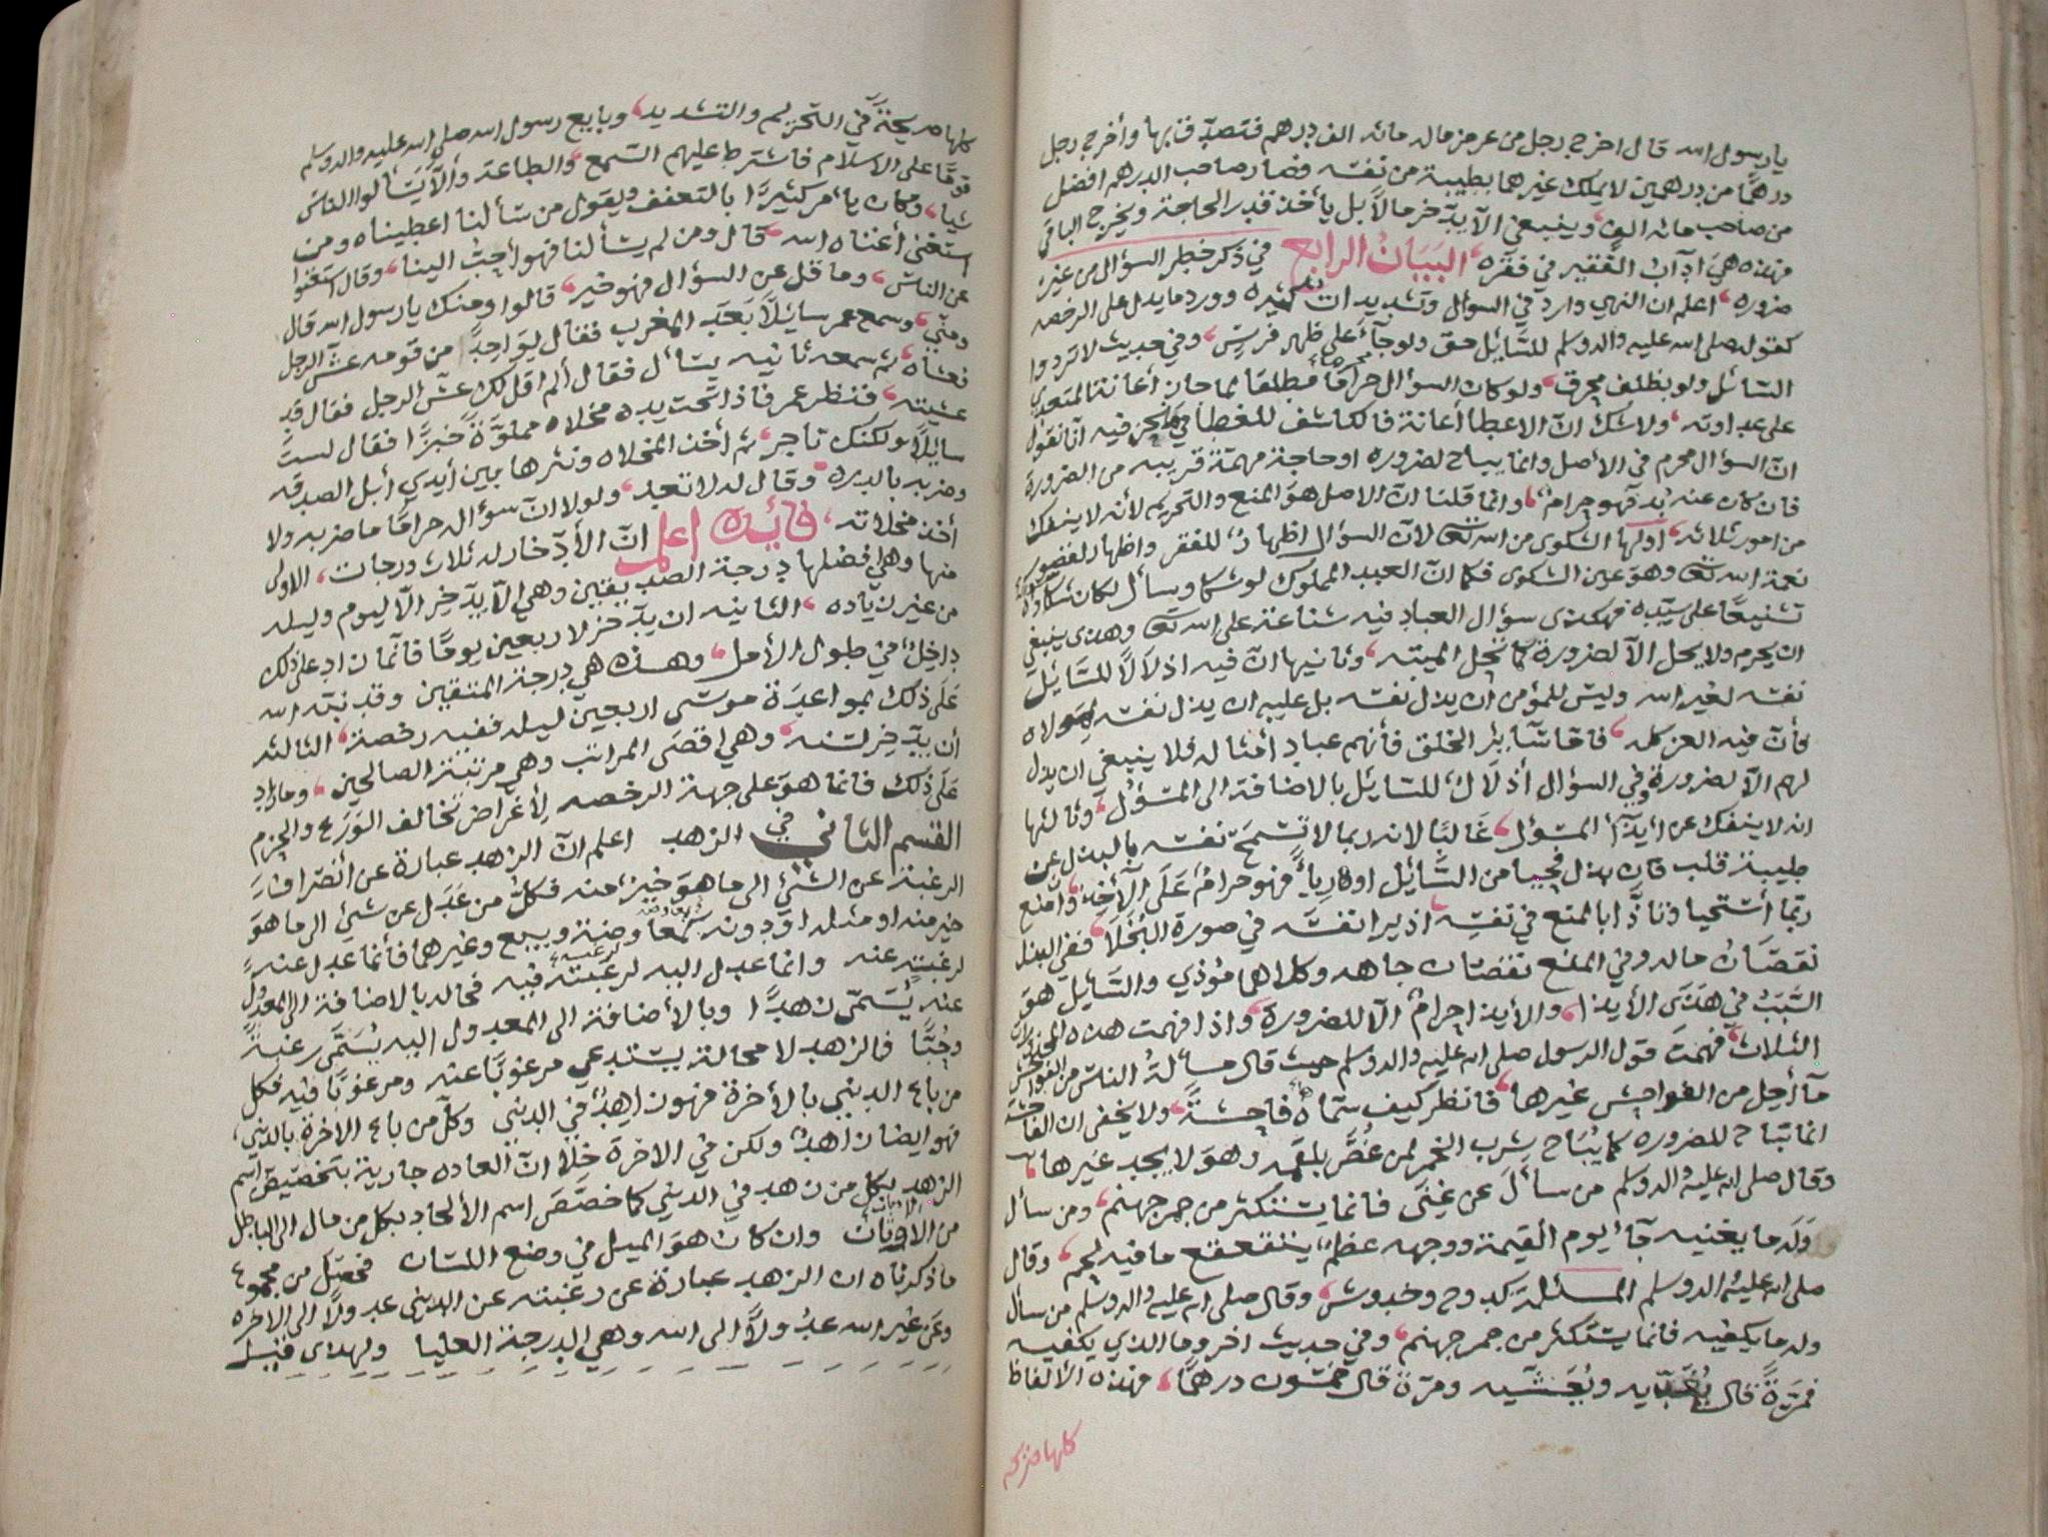 يا رسول الله قال اخرج رجل من عرض ماله مائه الف درهم فتصدق بها وأخرج رجل
درهمًا من درهمين لا يملك غيرهما بطيبة من نفسه فصار صاحب الدرهم افضل
من صاحب مائه الف، وينبغي الّا يدّخر مالاً بل يأخذ قدر الحاجة ويخرج الباقي
فهذه هي اداب الفقير في فقره، البَيَانُ الرابع في ذكر خطر السؤال من غير
ضروره، اعلم ان النهي وارد في السؤال وتشديدات كثيره وورد ما يدل على الرخصه
كقوله صلى الله عليه واله وسلم للسَّايل حق ولو جآء على ظهر فرسٍ، وفي حديث لا تردوا
السَّائل ولو بظلف محرق، ولو كان السؤال حرامًا مطلقا لما جاز أعانة المتعدي
على عداوته، ولا شك انّ الاعطا أعانة فالكاشف للغطا فيه انا نقول
انّ السؤال محرم في الأصل وانما يباح لضروره او حاجة مهمّة قريبه من الضرورة
فان كان عنه بد فهو حرامٌ، وانما قلنا انّ الاصل هوَ المنع والتحريم لأنه لا ينفك
من امور ثلاثه، اولها الشكوى من الله تعالى لأنّ السؤال اظهارٌ للفقر واظهار لقصور
نعمة الله تعالى وهوَ عين الشكوى فكما انّ العبد المملوك لو شكا وسأل لكان
تشنيعًا على سيّده فهكذى سؤال العباد فيه شناعة على الله تعالى وهذى ينبغي
ان يحرم ولا يحل الّا لضرورة كما تحل الميته، وثانيها انّ فيه اذلالًا للسَّائل
نفسه لغير الله وليس للمؤمن ان يذل نفسه بل عليه ان يذل نفسه لمولاه
فأنّ فيه العز كله، فامّا سَآئر الخلق فأنهم عباد أمثاله فلا ينبغي ان يذل
لهم الّا لضرورةٍ وفي السؤال أذلالٌ للسّايل بالاضافة الى المسَؤل، وثالثها
انه لا ينفك عن أيذآء المسؤل، غالبًا لانه ربما لا تسمَح نفسه بالبذل عن
طيبة قلب فان بذل حيا من السَّائل او رياءً فهو حرامٌ عَلَى الآخِذِ، وان منع
ربما أستحيا وتأذا بالمنع في نفسِه، اذ يرا نفسَه في صورة البُخَلَا، ففي البذل
نقصَان ماله وفي المنع نقصَان جاهه وكلاهما مؤذي والسَّايل هوَ
السَّبَبُ في هَذَى الأيذا، والأيذا حرامٌ الّا للضرورة، واذا فهمت هذه المحاذير
الثلاث، فهمت قول الرسول صلى الله عليه واله وسلم حيث قال مسألة الناس من الفواحش
مآ أحِل من الفواحش غيرها، فانظر كيف سمّاه فاحشةً، ولا يخفى ان الفاحشة
انما تباح للضروره كما يُبَاح شرب الخمر لمن غُصَّ بلقمه وهوَ لا يجد غيرها،
وقال صلى الله عليه واله وسلم من سأل عن غِنَى فانما يستكثر من جمر جهنم، ومن سأل
وَلَه ما يغنيه جآء يوم القيمة ووجهه عظمٌ يتقعقع ما فيه لحم، وقال
صلى الله عليه واله وسلم المسئلة كدوح وخدوش، وقال صلى الله عليه واله وسلم من سأل
وله ما يكفيه فانما يستكثر من جمر جهنم، وفي حديث اخر وما الذي يكفيه
فمرّةً قال يُغدّيه ويُعَشّيه ومرّة قال خمسُون درهمًا، فهذه الألفاظ
كلها صريحة
كلها صريحةً في التحريم والتشديد، وبايع رسول الله صلى الله عليه واله وسلم
قومًا على الاسلام فاشترط عليهم السمع، والطاعة وألّا يَسألوا الناس
شيا، وكان يأمر كثيرًا بالتعفف ويقول من سألنا اعطيناه ومن
استغنى أغناه الله، قال ومن لم يسألنا فهو أحبُ الينا، وقال استغنوا
عن الناس، وما قل عن السؤال فهو خير، قالوا ومنك يا رسول الله قال
ومني، وسمع عمر سائلًا بَعَد المغرب فقال لواحدٍ من قومه عشّ الرجل
فعشاه، ثم سمعه ثانيه يسأل فقال ألم اقل لك عشّ الرجل فقال قد
عشيته، فنظر عمر فاذا تحت يده مخلاه مملوّةً خبزًا فقال لستَ
سائلًا ولكنك تاجر، ثم أخذ المخلاه ونثرها بين أيدي أبل الصدقه
وضربه بالدره، وقال له لا تعد، ولولا انّ سؤاله حرامًا ما ضربه ولا
أخذ مخلاته، فائده اعلم انّ الأدّخار له ثلاث درجات، الاولى
منها وهي افضلها درجة الصديقين وهي الّا يدّخر الّا ليوم وليله
من غير زياده، الثانيه ان يدّخر لاربعين يومًا فأنما زاد على ذلك
داخِلٌ في طول الأمل، وهذه هي درجة المتقين وقد نبّه الله
عَلَى ذلك بمواعدة موسَى اربعين ليله ففيه رخصة، الثالثه
أن يدّخر لسَنه، وهي اقصَى المراتب وهي مرتبة الصالحين، وما زاد
عَلَى ذلك فانما هوَ على جهة الرخصه لأغراض تخالف الوَرَع والحزم
القسم الثاني في الزهد اعلم انّ الزهد عبارة عن أنصرافٍ
الرغبة عن الشئ الى ما هوَ خيرٌ منه فكلّ من عَدَل عن شئ الى ما هوَ
خير منه او مثله او دونه بمعاوضة وبيع وغيرهما فأنما عدل عنه
لرغبتهِ عنه وانما عدل اليه لرغبته فيه فحاله بالاضافة الى المعدول
عنه يُسَمّى زهدًا وبالأضافة الى المعدول اليه يُسَمَّى رغبةً
وحُبًّا فالزهد لا محالة يستدعي مرغوبًا عنه ومرغوبًا فيه فكل
من باع الدنيى بالأخرة فهو زاهدٌ في الدنيى وكلّ من باع الاخرة بالدنيى،
فهو ايضا زاهدٌ ولكن في الاخرة خلا انّ العاده جارية بتخصيصِ اسم
الزهد بكل من زهد في الدنيى كما خصّصَ اسم الألحاد بكل من مال الى الباطل
من الاديان وان كان هوَ الميل في وضع اللسَان فحصَل من مجموع
ما ذكرناه ان الزهد عبارة عن رغبته عن الدنيى عدولًا الى الاخره
وعَن غير الله عدُولًا الى الله وهي الدرجة العليا ولهذى قيل